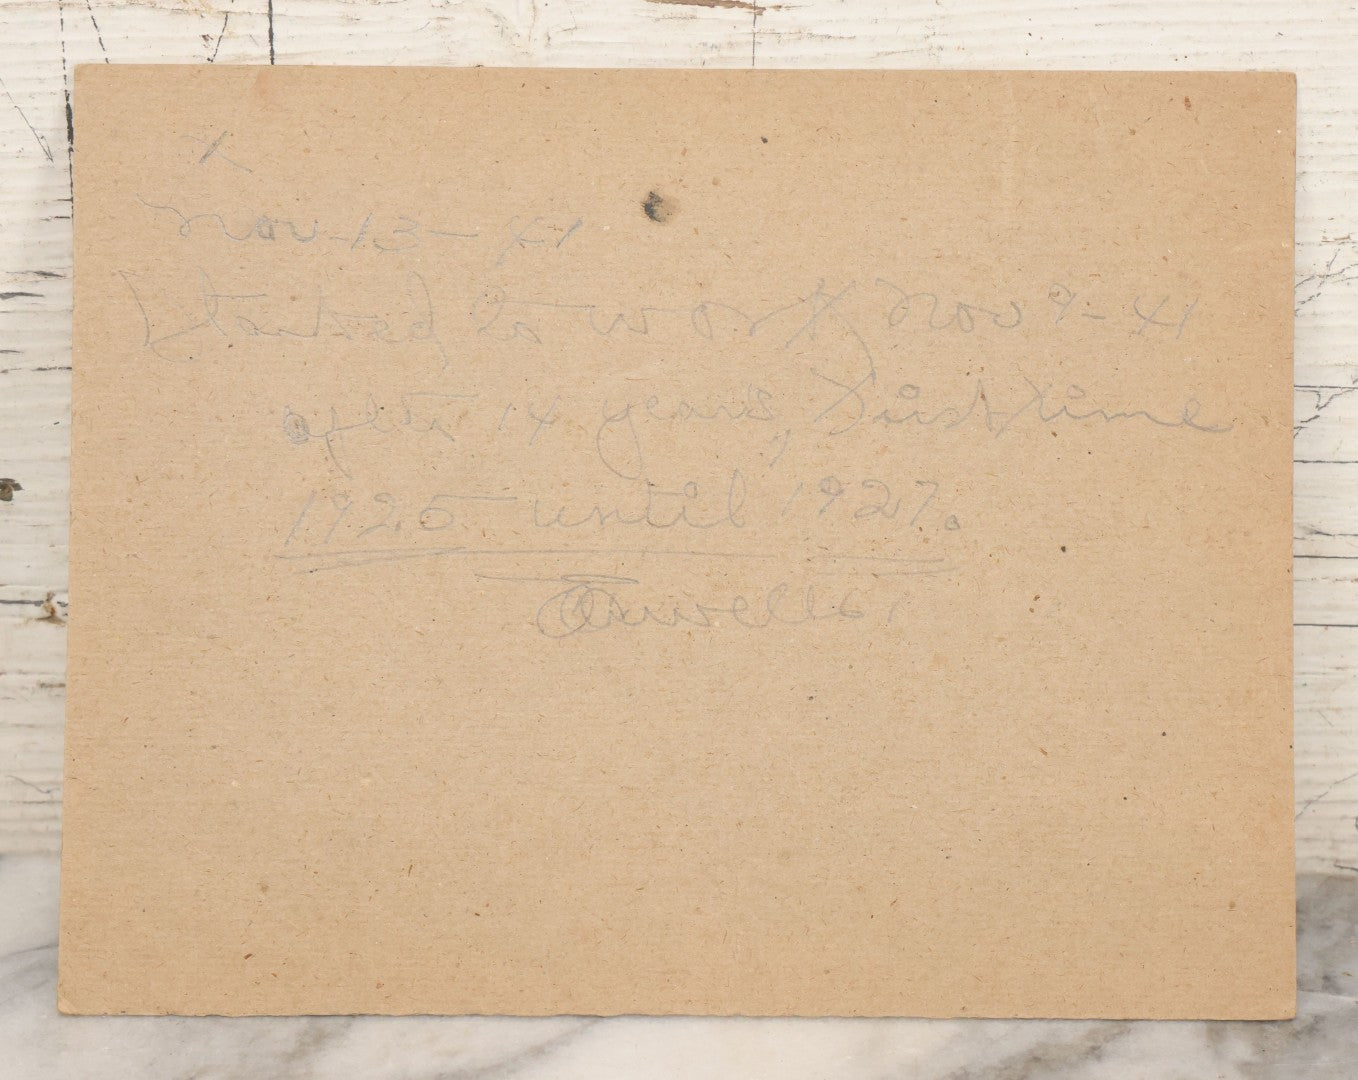 x
Nov-13-41
Started to work Nov 9-41
after 14 years, First time
1925 - until 1927.